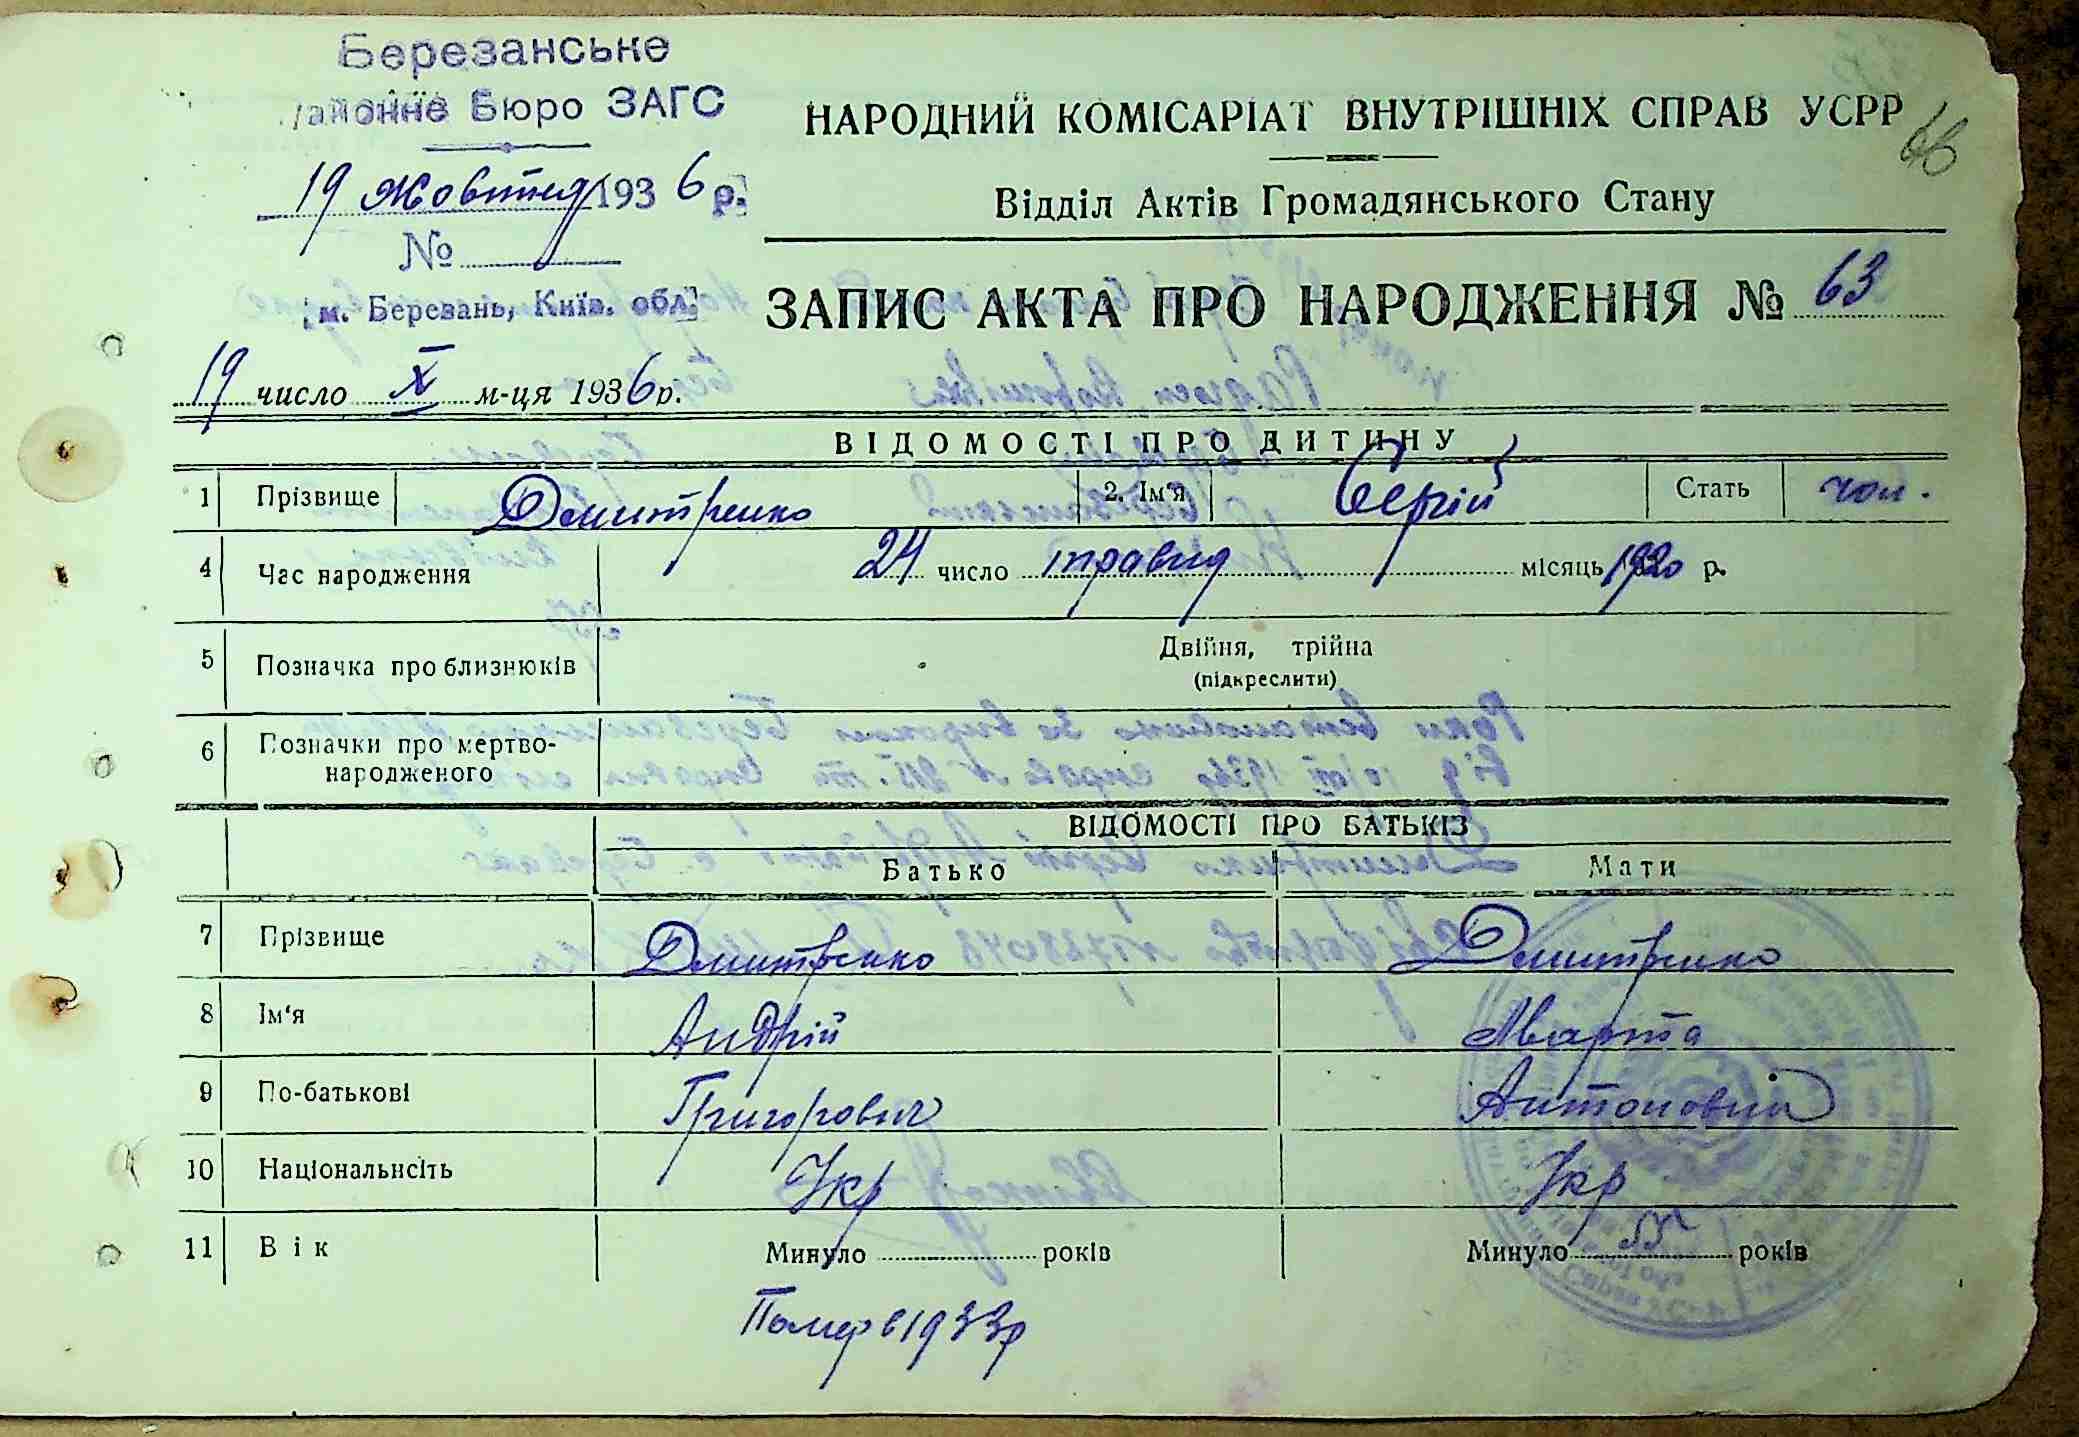 Березанське
районне Бюро ЗАГС
19 Жовтня 1936 р.
№
м. Березань, Київ. обл.
НАРОДНИЙ КОМІСАРІАТ ВНУТРІШНІХ СПРАВ УСРР
66
Відділ Актів Громадянського Стану
ЗАПИС АКТА ПРО НАРОДЖЕННЯ № 63
19 число X м-ця 1936 р.
ВІДОМОСТІ ПРО ДИТИНУ
1 Прізвище Дмитренко 2. Ім'я Сергій Стать чол.
4 Час народження 24 число травня місяць 1920 р.
5 Позначка про близнюків Двійня, трійна
(підкреслити)
6 Позначки про мертво-
народженого
ВІДОМОСТІ ПРО БАТЬКІВ
Батько Мати
7 Прізвище Дмитренко Дмитренко
8 Ім'я Андрій Марта
9 По-батькові Григорович Антоновна
10 Національнсіть Укр Укр
11 Вік Минуло років Минуло 55 років
Помер в 1933р